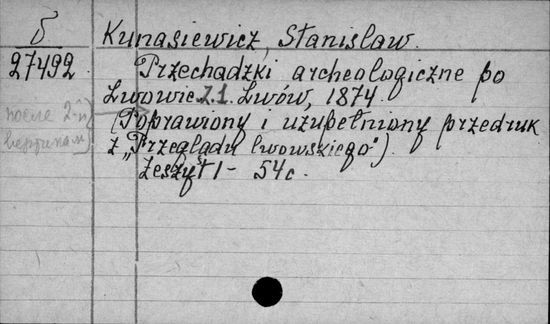 б
27492
Kunasiewicz, Stanisław.
Przechadzki archeologiczne po
Lwowie z.1. Lwów, 1874.
(Poprawiony i uzupełniony przedruk
z „Przeglądu lwowskiego“)
Zeszyt I - 54 с.
после 2-й